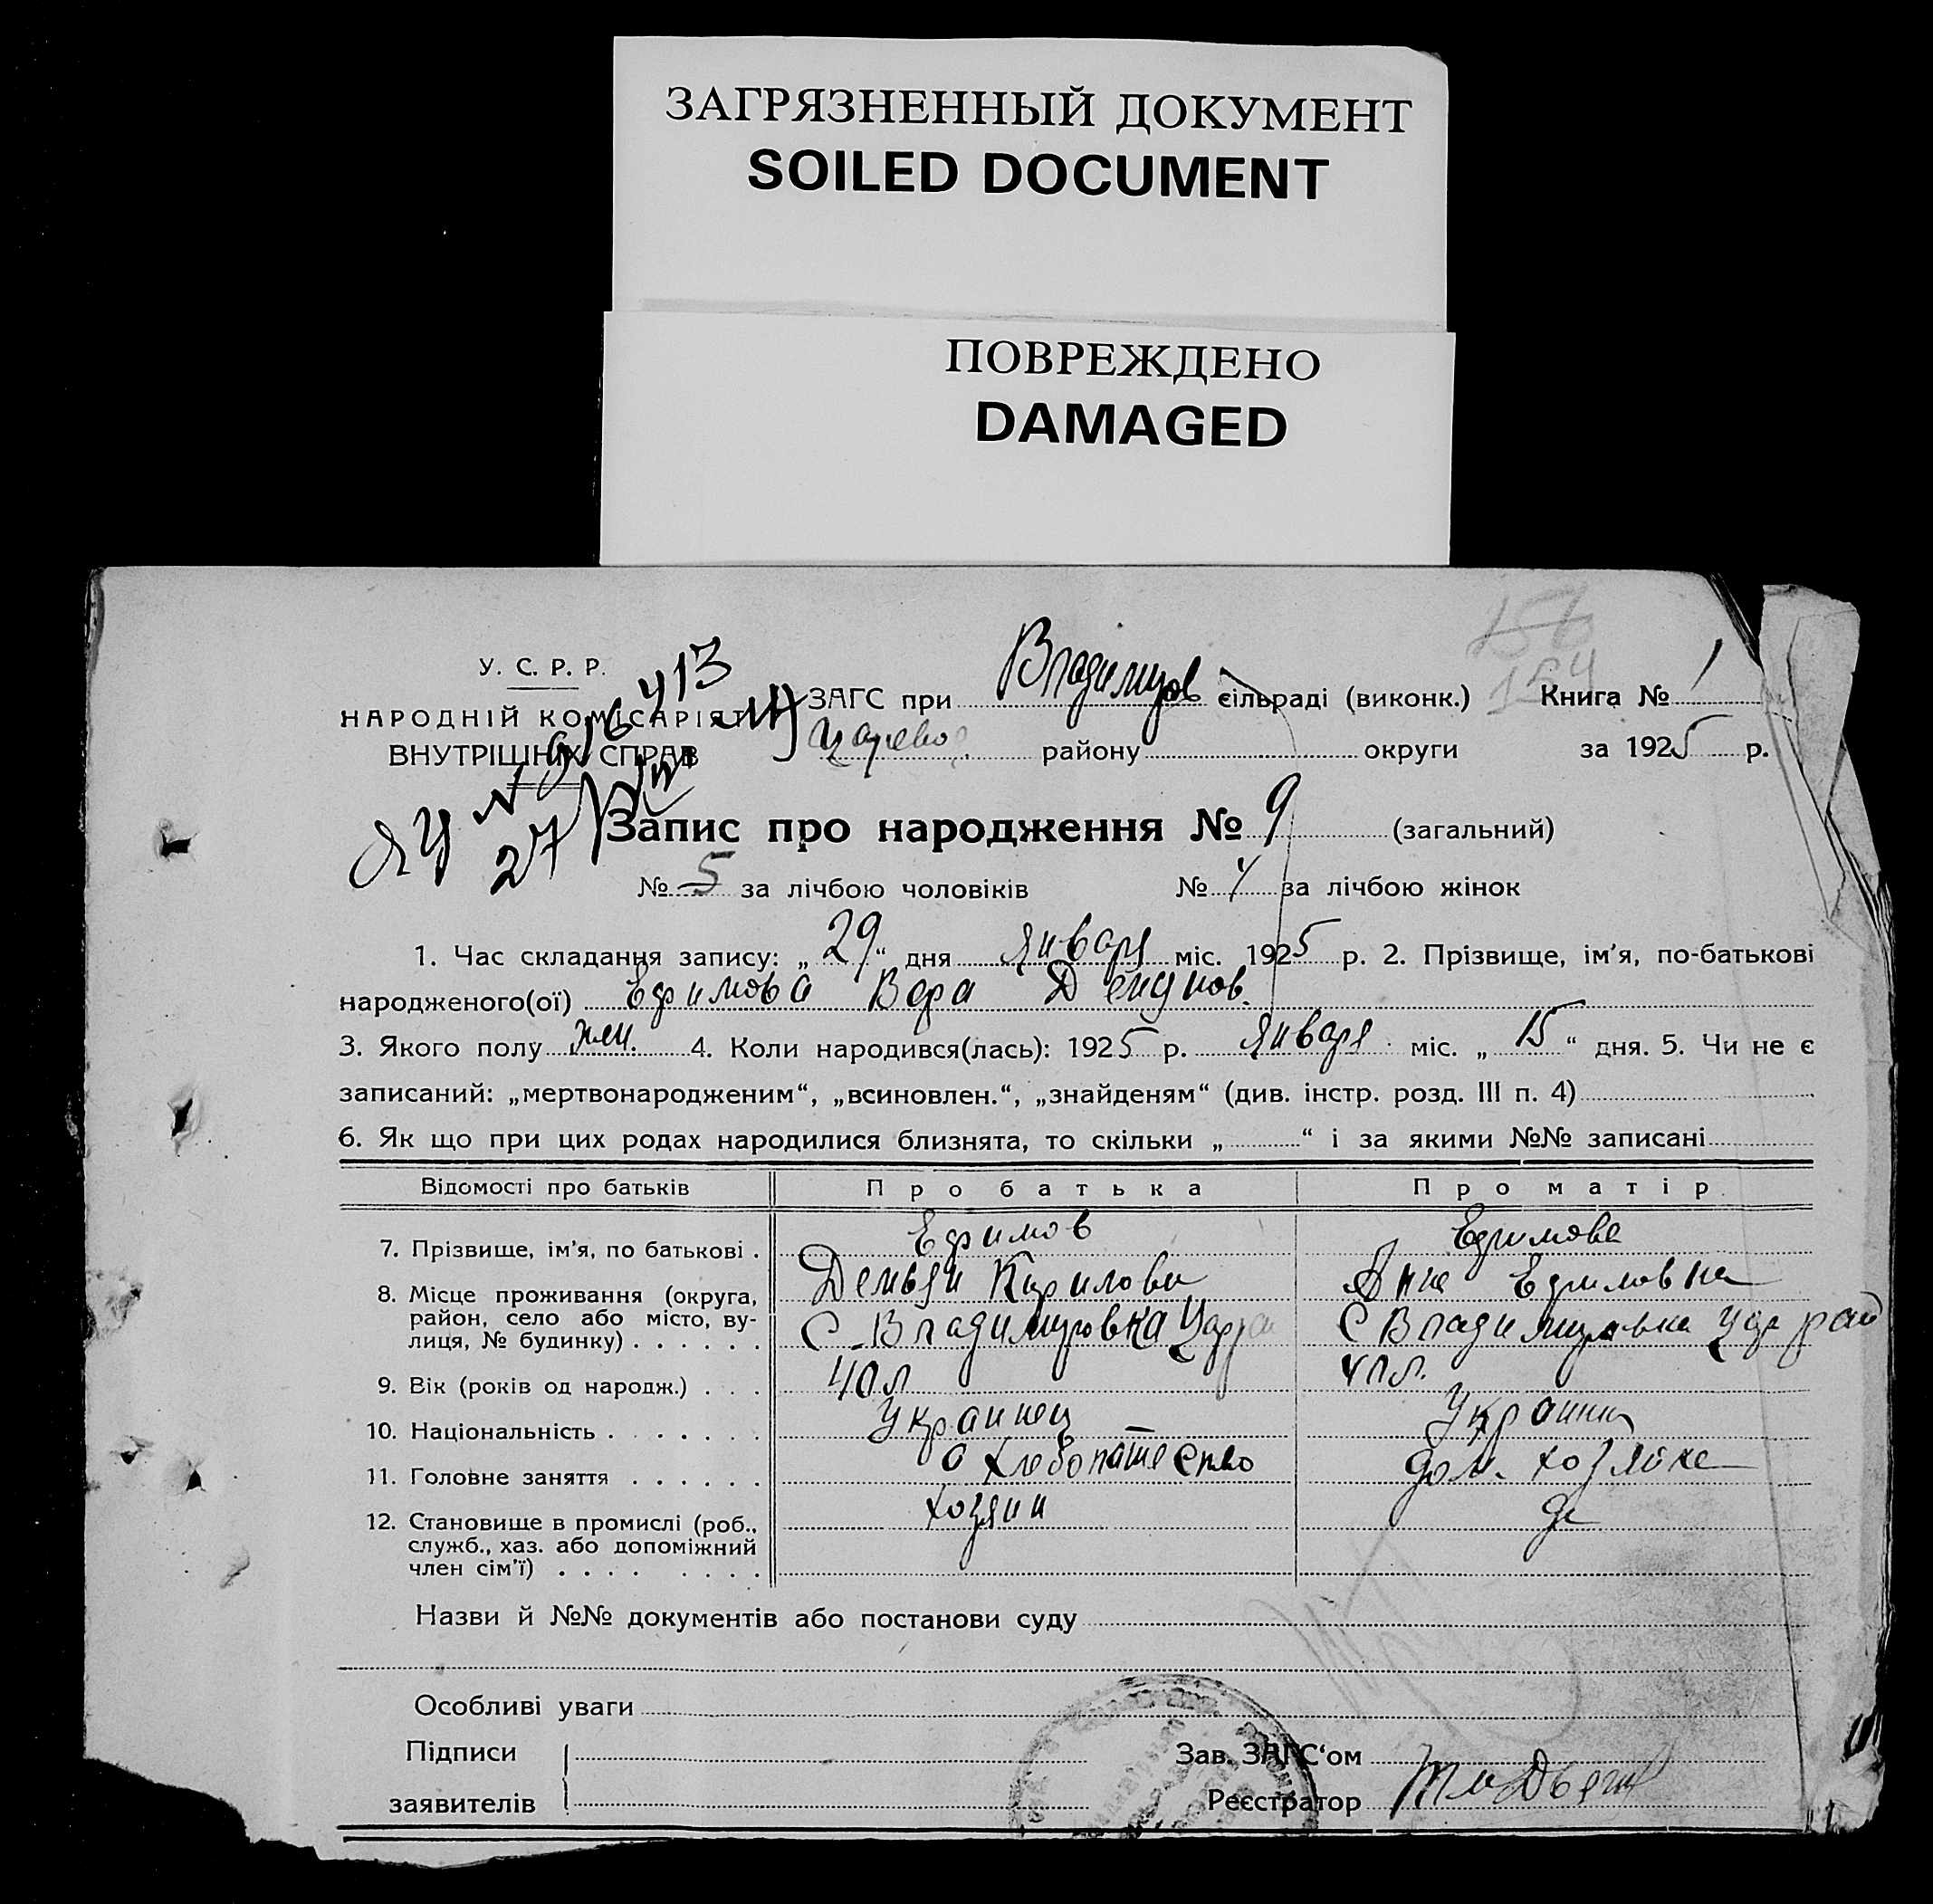 ЗАГРЯЗНЕННЫЙ ДОКУМЕНТ
SOILED DOCUMENT
ПОВРЕЖДЕНО
DAMAGED
156
154
У. С. Р. Р.
НАРОДНІЙ КОМІСАРІЯТ
ВНУТРІШНІХ СПРАВ
413
27
ЗАГС при Владимиров сільраді (виконк.) Книга № 1
району округи за 1925 р.
Запис про народження № 9 (загальний)
№ 5 за лічбою чоловіків № 4 за лічбою жінок
1. Час складання запису: „ 29 “ дня Января міс. 1925 р. 2. Прізвище, ім’я, по-батькові
народженого(ої) Ефимова Вера
3. Якого полу жен. 4. Коли народився(лась): 1925 р. Января міс. „ 15 “ дня. 5. Чи не є
записаний: „мертвонародженим“, „всиновлен.“, „знайденям“ (див. інстр. розд. III п. 4)
6. Як що при цих родах народилися близнята, то скільки „ “ і за якими №№ записані
Відомості про батьків Про батька Про матір
7. Прізвище, ім’я, по батькові . Ефимов Ефимова
Демьян Кирилови Анна Ефимовна
8. Місце проживання (округа,
район, село або місто, ву-
лиця, № будинку) . . . . . . С Владимировка С Владимировка рай
9. Вік (років од народж.) . . . 40 л
10. Національність . . . . . . . Украинец Украинк
11. Головне заняття . . . . . . Хлебопашество дом. хозяйка
12. Становище в промислі (роб., Хозяин
служб., хаз. або допоміжний
член сім’ї) . . . . . . . .
Назви й №№ документів або постанови суду
Особливі уваги
Підписи
заявителів
Зав. ЗАГС‘ом
Реєстратор